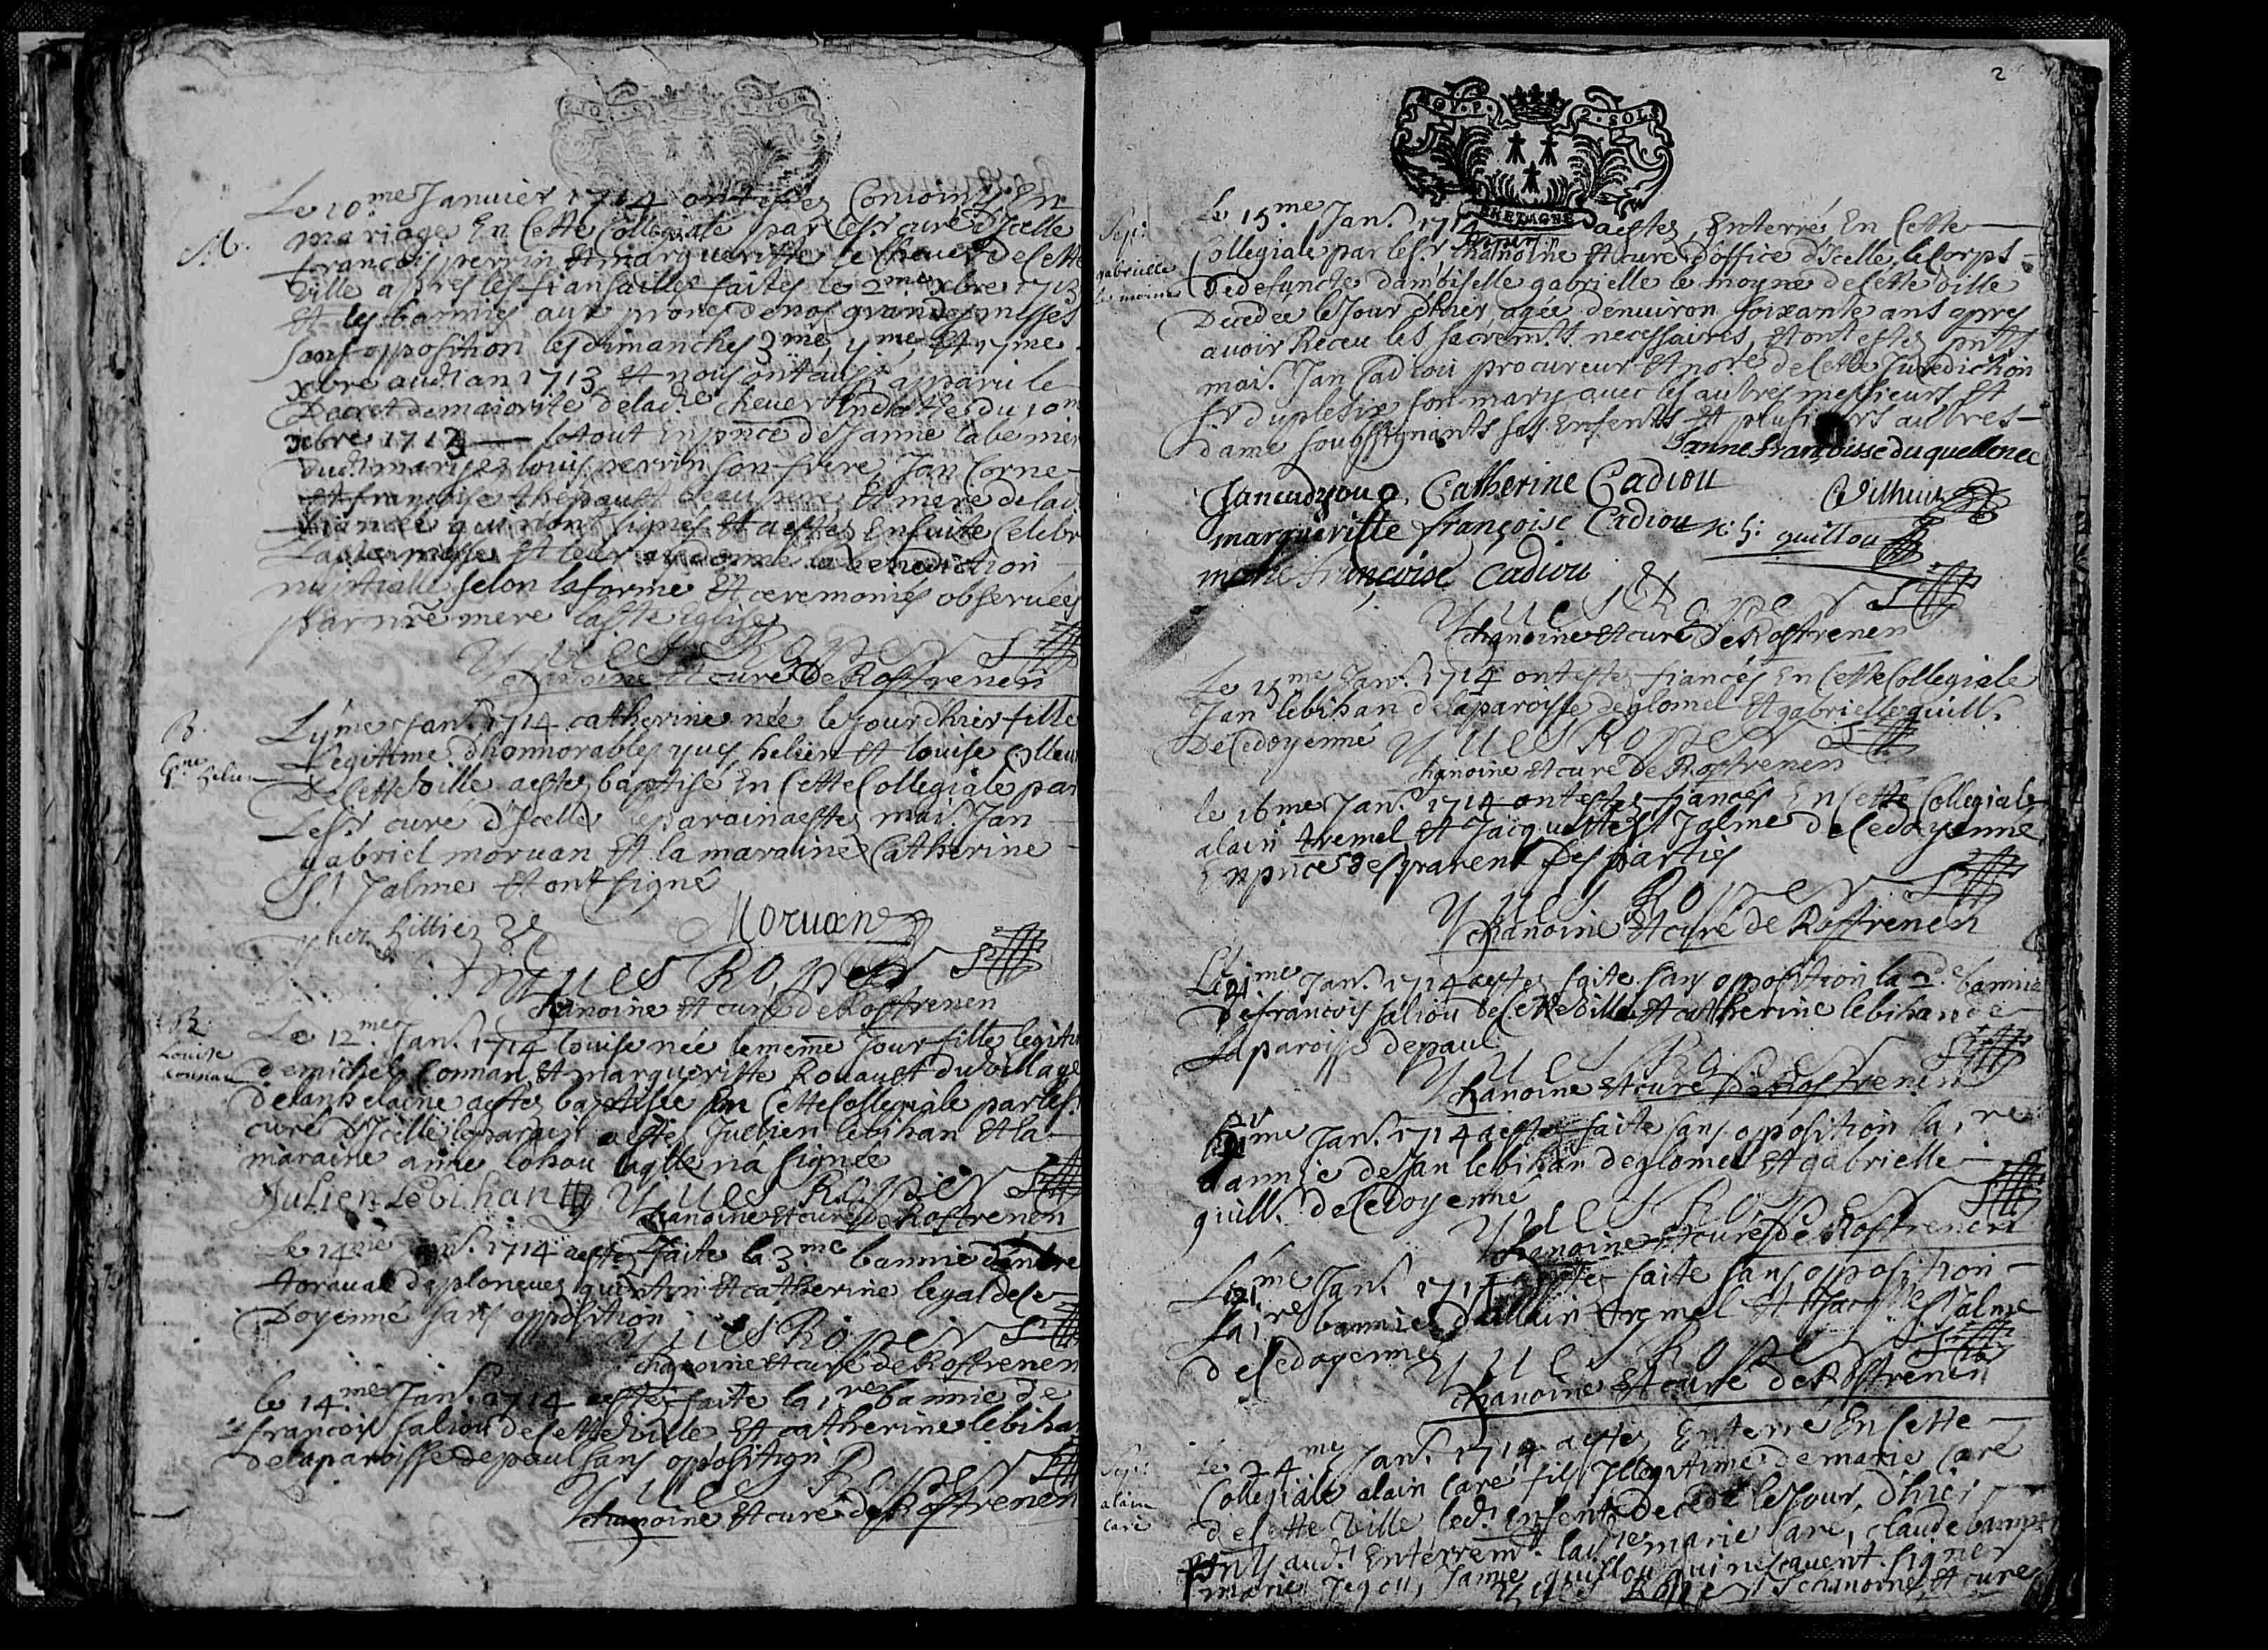 Le 10.me Janvier 1714 ont estes Conioints En
M. mariage En Cette Collegiale par le Sr curé d'Icelle
francois perrin Et margueritte le Chever de Cette
ville apres les fiansailles faites le 2.me xbre 1713
Et les bannies aux prônes de nos grandes messes
sans opposition les dimanches 3.me, Et 17me
xbre aud.t an 1713 Et nous ont aussi apparu le
Decret de majorité de lad.e Chever du 10me
xbre 1713 le tout En pnce de Janne
dud.t louis perrin son frere, Jan Corne
Et françoise thepault beau pere, Et mere de lad.
fiancée qui n'ont signés Et a estes Ensuite Celebré
la messe Et leur ai donné la benediction
nuptialle selon la forme Et ceremonies observées
Par nre mere la Ste Eglise
Yves Roper
chanoine Et curé De Rostrenen
B.
Cne helien
L'11me Jan.r 1714 catherine née le Jour d'hier fille
legitime d'honnorables yves helien Et louise
De Cette ville a estes baptisé En Cette Collegiale par
Le Sr curé d'Icelle le parain a estes mai. Jan
gabriel morvan Et la maraine Catherine
St Jalmes Et ont signé
Morvan
Yves Roper
chanoine Et curé de Rostrenen
B.
Louise
connan
Le 12.me Jan.r 1714 louise née le meme Jour fille legiti
de michel Connan Et margueritte Rouault du village
a estes baptisée En Cette Collegiale par le Sr
curé d'Icelle le parain a estes Jullien le bihan Et la
maraine anne lohou laqlle n'a signée
Julien Le bihan Yves Roper
chanoine Et curé De Rostrenen
Le 14me Jan.r 1714 a estes faite la 3.me bannie d'andré
toraval de quintin Et catherine legal de ce
Doyenné sans opposition
Yves Roper
chanoine Et curé de Rostrenen
le 14.me Jan.r 1714 a estes faite la 1.re bannie de
francois saliou de Cette ville Et catherine le bihan
de la paroisse de paul sans opposition
Yves Roper
chanoine Et curé de Rostrenen
2
ROY. P. 2. SOLS
BRETAGNE
Sep.
gabrielle
le moine
Le 15.me Jan.r 1714 a estes Enterré En Cette
Collegiale par le Sr chanoine Et curé d'office d'Icelle, le corps
De defuncte dam.oiselle gabrielle le moyne de Cette ville
Decedée le Jour d'hier agée d'environ soixante ans apres
avoir Receu les sacrem.ts necessaires, Et ont estes pnts
mai. Jan Cadiou procureur Et no.re de Cette Jurediction
Sr duplesix son mary avec les autres messieurs Et
dame soubsignants ses Enfents Et plusieurs autres
Janne françoisse du quellenec
Jan cadyou Catherine Cadiou
margueritte françoise Cadiou guillou
marie françoise Cadiou
Yves Roper
chanoine Et curé De Rostrenen
Le 15me Jan.r 1714 ont estes fiancés En Cette Collegiale
Jan lebihan de la paroisse de glomel Et gabrielle guill.
De Ce doyenné Yves Roper
chanoine Et curé de Rostrenen
le 16me Jan.r 1714 ont estes fiancés En Cette Collegiale
alain tremel Et Jacquette St Jalme de Ce doyenné
En pnce des parents Des parties
Yves Roper
chanoine Et curé de Rostrenen
Le 21me Jan.r 1714 a estes faite sans opposition la 2.de bannie
De francois saliou de Cette ville Et catherine lebihan de
la paroisse de paul
Yves Roper
chanoine Et curé De Rostrenen
21me Jan.r 1714 a estes faite sans opposition la 1re
bannie de Jan lebihan de glomel Et gabrielle
guill. de Ce doyenné
Yves Roper
chanoine Et curé De Rostrenen
Le 21me Jan.r 1714 a estes faite sans opposition
La 1re bannie d'allain tremel Et Jacqtte St Jalme
de Ce doyenné Yves Roper
chanoine Et curé de Rostrenen
Sep.
alain
Caré
Le 24me Jan.r 1714 a estes Enterré En Cette
Collegiale alain Caré fils Illegitime de marie Caré
de Cette ville led.t Enfent Decedé le Jour d'hier
pnts aud.t Enterrem.t lad.e marie Caré, Claude
marie Jegou, Janne guillou qui ne scavent signer
Yves Roper chanoine Et curé